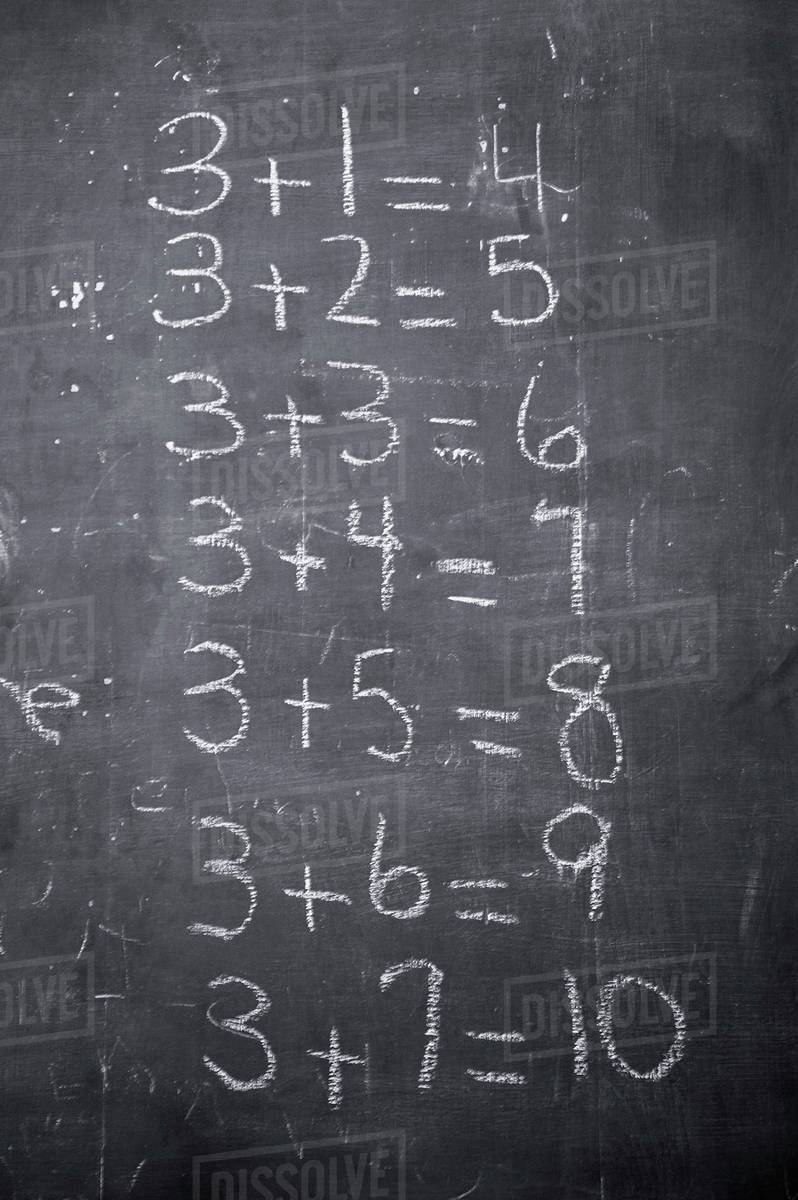 3 + 1 = 4
3 + 2 = 5
3 + 3 = 6
3 + 4 = 7
3 + 5 = 8
3 + 6 = 9
3 + 7 = 10
DISSOLVE
DISSOLVE
DISSOLVE
DISSOLVE
DISSOLVE
DISSOLVE
DISSOLVE